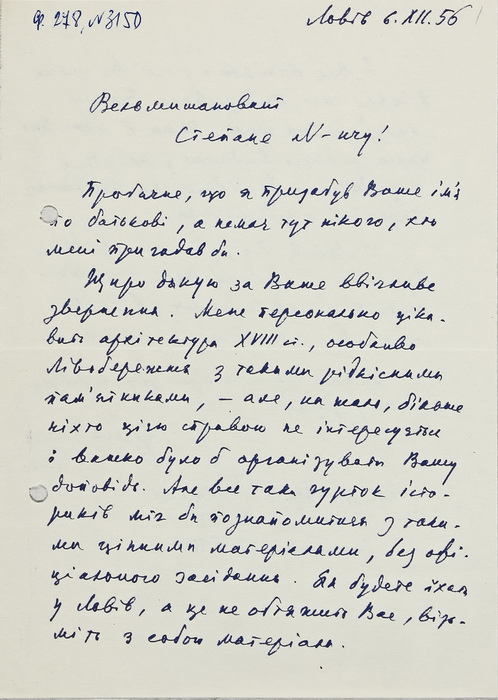 Ф. 278, №3150
Львів 6.XII.56
Вельмишановний
Степане N-ичу!
Пробачте, що я призабув Ваше ім'я
по батькові, а немає тут нікого, хто
мені пригадав би.
Щиро дякую за Ваше ввічливе
звернення. Мене персонально ціка-
вить архітектура XVIII ст., особливо
Лівобережжя з такими рідкісними
пам'ятниками, – але, на жаль, більше
ніхто цією справою не інтересується
і важко було б організувати Вашу
доповідь. Але все таки гурток істо-
риків міг би познайомитися з таки-
ми цінними матеріалами, без офі-
ціального засідання. Як будете їхати
у Львів, а це не обтяжить Вас, візь-
міть з собою матеріали.